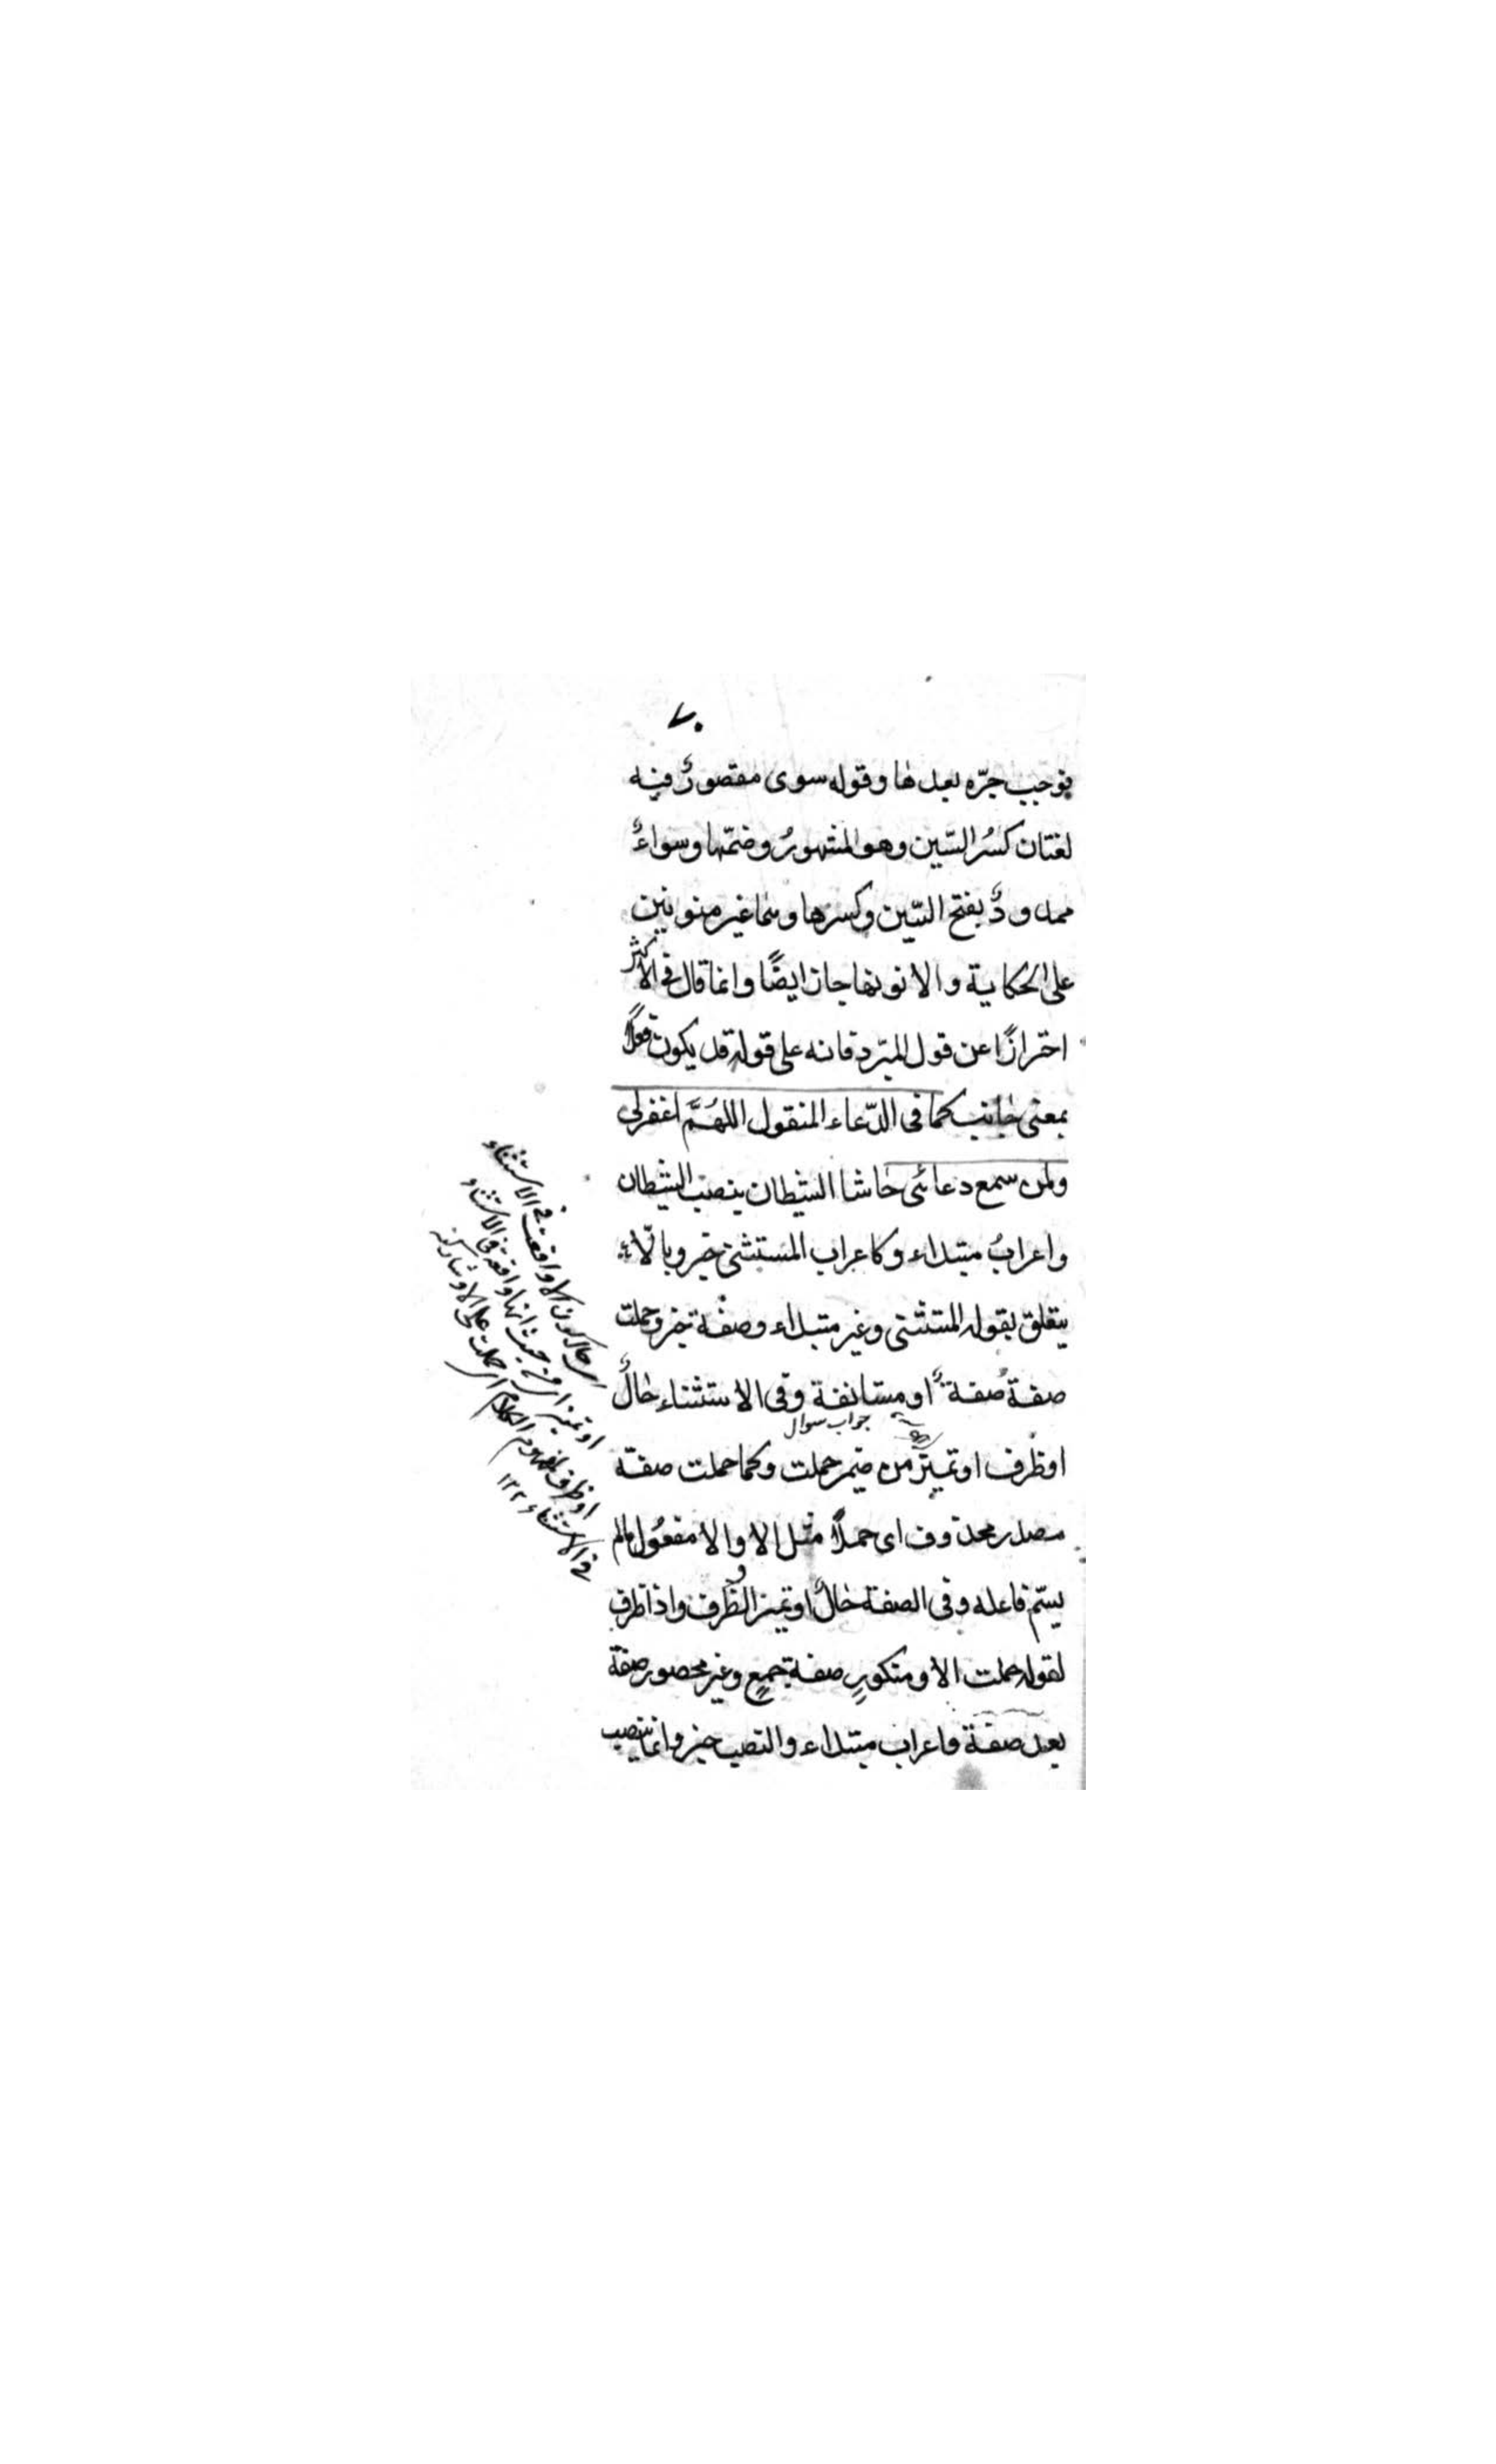 ٧٠
فوجب جرّه بعدها وقوله سوى مقصورٌ فيه
لغتان كسرُ السّين وهو المشهورُ وضمّها وسواءٌ
ممدودٌ بفتح السّين وكسرها وهما غير منونين
على الحكاية والا نونها جاز ايضًا وانما قال فى الاكثر
احترازًا عن قول المبرّد فانه على قوله قد يكون فعلًا
بمعنى جانب كما فى الدّعاء المنقول اللهُمَّ اغفرلى
ولمن سمع دعائى حاشا الشيطان بنصب الشيطان
واعرابُ مبتداء وكاعراب المستثنى خبر وبالّا
يتعلق بقوله المستثنى وغير مبتداء وصفة خبر وحملت
صفة صفةٌ او مستانفة وفى الاستثناء حالٌ
جواب سوال
او ظرف او تميزٌ من ضمير حملت وكما حملت صفة
مصدر محذوف اى حملًا مثل الا والا مفعول مالم
يسمّ فاعله وفى الصفة حالٌ او تميز او الظرف واذا ظرف
لقوله حملت الا ومنكورٍ صفة جمعٍ وغير محصور صفة
بعد صفة فاعراب مبتداء والنصب خبر وانما ينتصب
واقعت فى الاستثناء
او تميز اى من حيث انها واقعة فى الاستثناء
او ظرف لمفهوم الكلام اى حملت على الا
فى الاستثناء ١٢